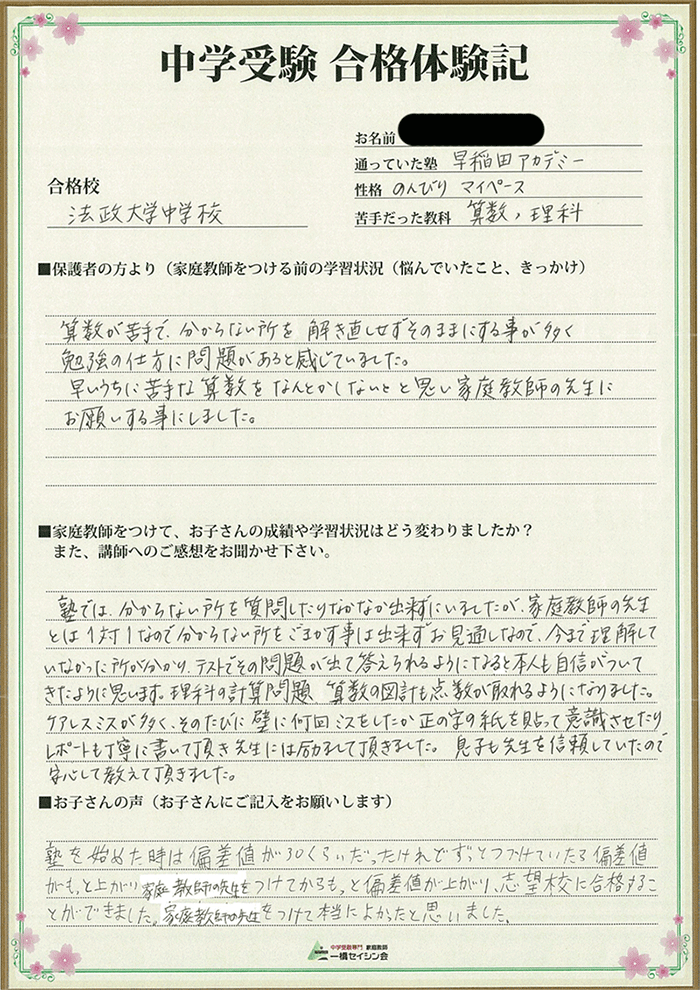 中学受験 合格体験記
お名前
通っていた塾 早稲田アカデミー
合格校
性格 のんびり マイペース
法政大学中学校
苦手だった教科 算数、理科
■保護者の方より（家庭教師をつける前の学習状況（悩んでいたこと、きっかけ）
算数が苦手で、分からない所を 解き直しせずそのままにする事が多く
勉強の仕方に問題があると感じていました。
早いうちに苦手な算数をなんとかしないとと思い家庭教師の先生に
お願いする事にしました。
■家庭教師をつけて、お子さんの成績や学習状況はどう変わりましたか？
また、講師へのご感想をお聞かせ下さい。
塾では、分からない所を質問したりなかなか出来ずにいましたが、家庭教師の先生
とは1対1なので分からない所をごまかす事は出来ずお見通しなので、今まで理解して
いなかった所が分かり、テストでその問題が出て答えられるようになると本人も自信がついて
きたように思います。理科の計算問題、算数の図計も点数が取れるようになりました。
ケアレスミスが多く、そのたびに壁に何回ミスをしたか正の字の紙を貼って意識させたり
レポートも丁寧に書いて頂き先生には励まして頂きました。 息子も先生を信頼していたので
安心して教えて頂きました。
■お子さんの声（お子さんにご記入をお願いします）
塾を始めた時は偏差値が30くらいだったけれどずっとつづけていたら偏差値
がもっと上がり家庭教師の先生をつけてからもっと偏差値が上がり、志望校に合格するこ
とができました。家庭教師の先生をつけて本当によかったと思いました。
中学受験専門 家庭教師
一橋セイシン会